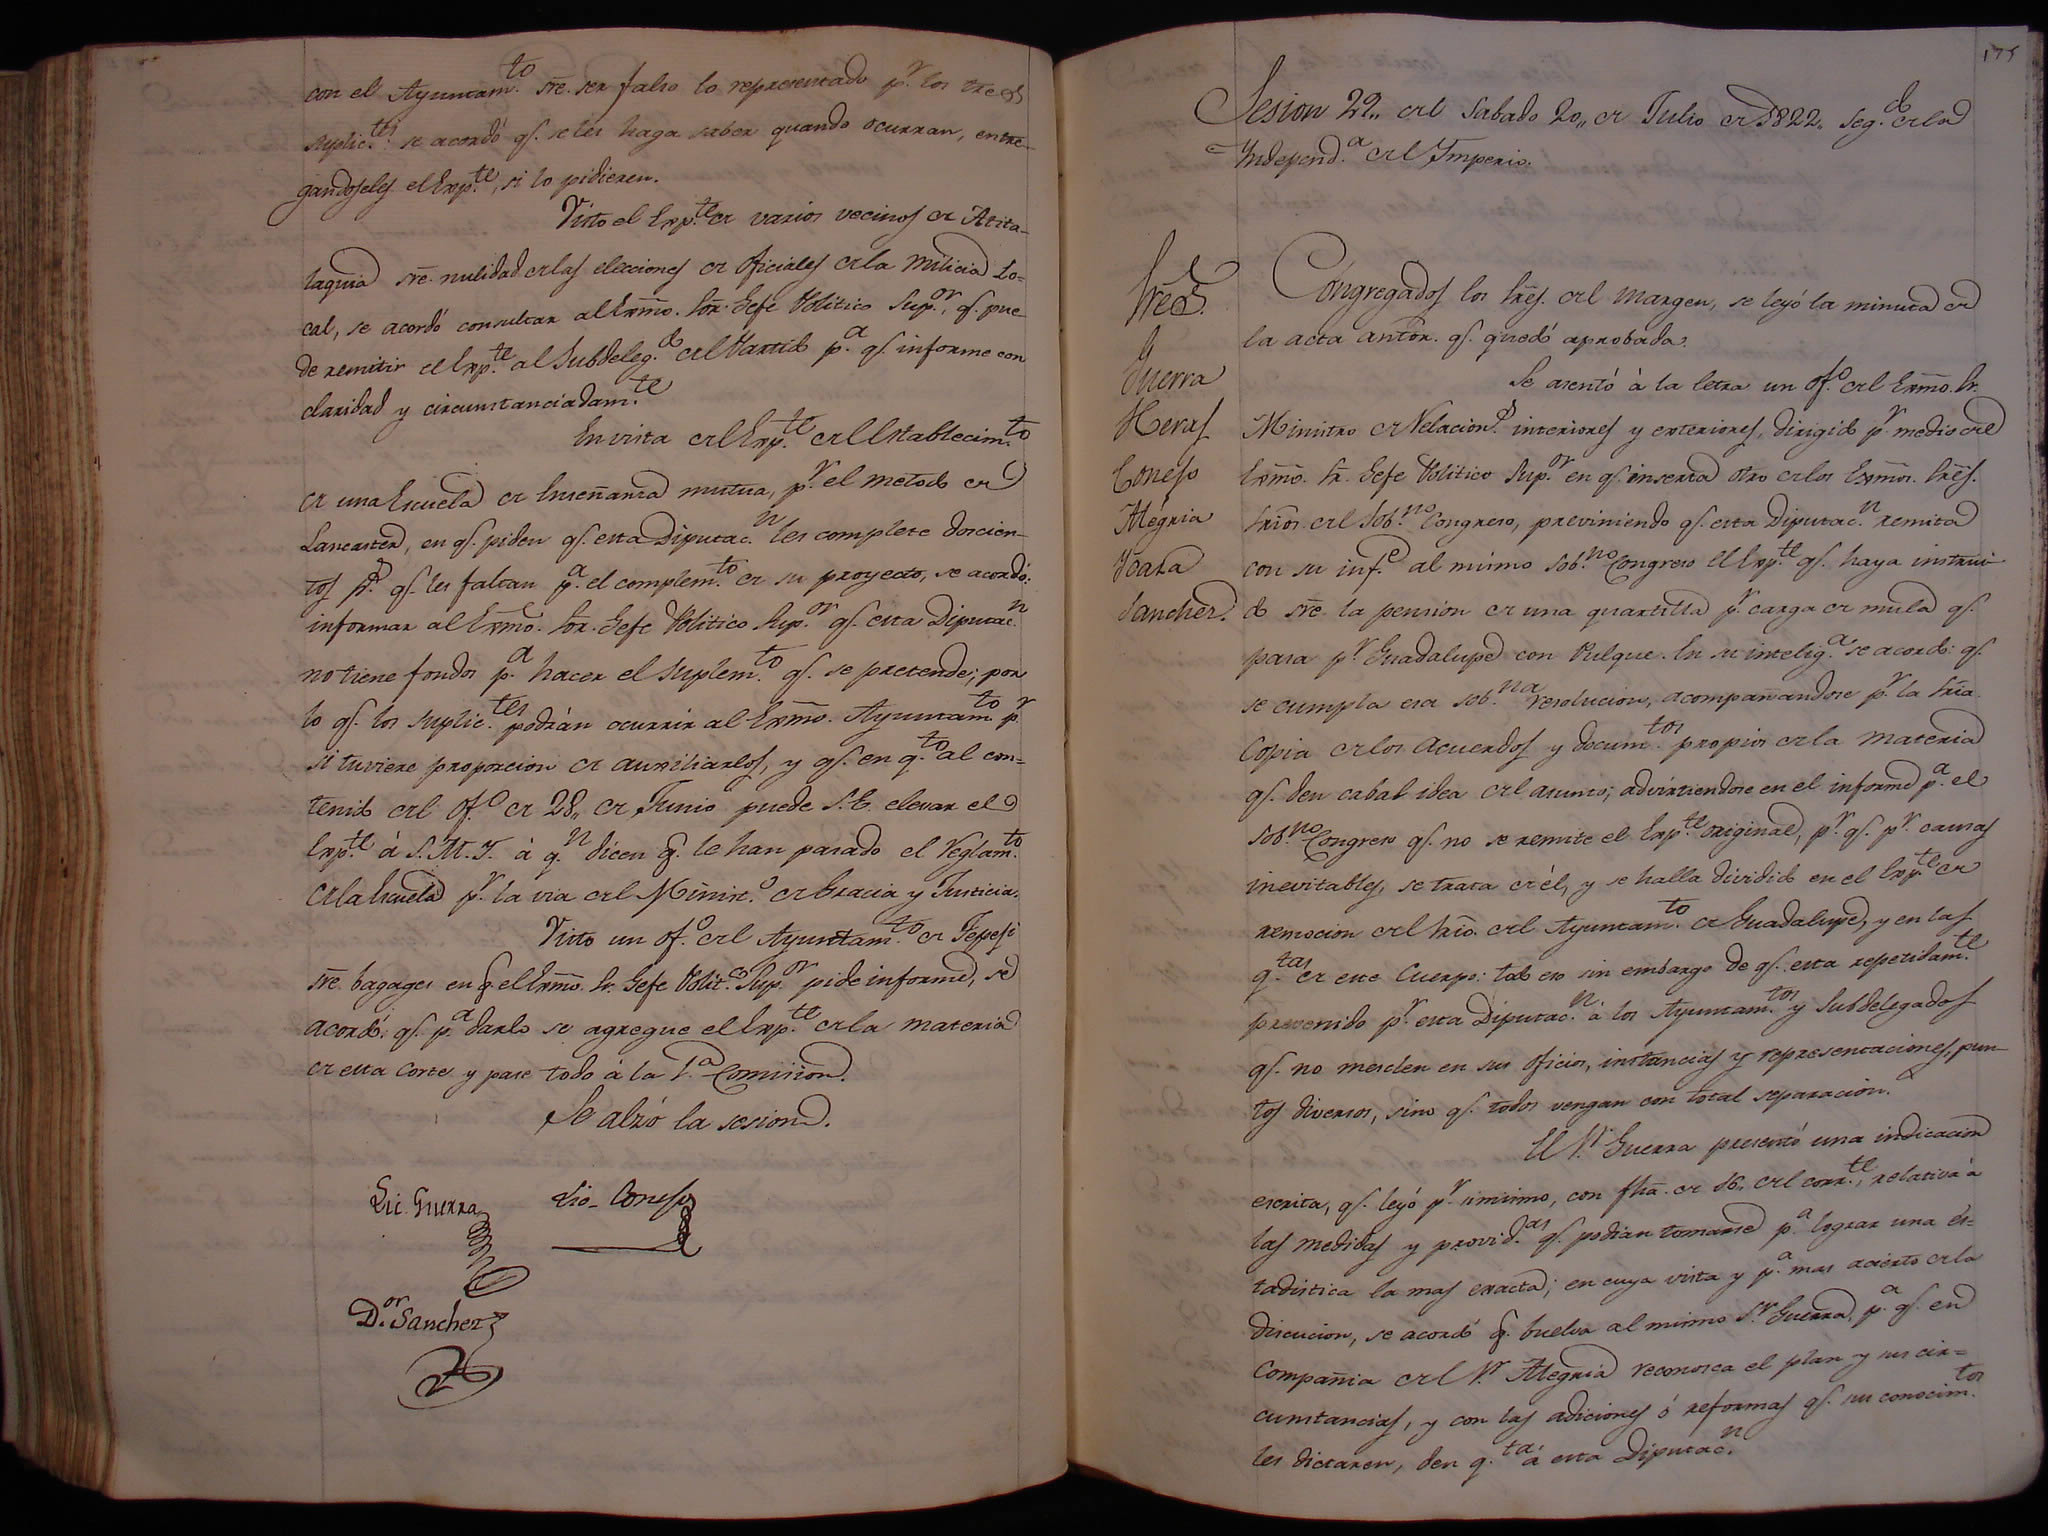 con el Ayuntam.to sre. ser falso lo representado p.r los tres
suplic.tes se acordó q.e se les haga saber quando ocurran, entre-
gandoseles el Exp.te, si lo pidieren.
Visto el Exp.te de varios vecinos de Atita-
laquia sre. nulidad de las elecciones de Oficiales de la Milicia Lo-
cal, se acordó consultar al Exmo. Sor. Gefe Politico Sup.or, q.e pue-
de remitir el Exp.te al Subdeleg.do del Partido p.a q.e informe con
claridad y circunstanciadam.te
En vista del Exp.te del Establecim.to
de una Escuela de Enseñanza mutua, p.r el metodo de
Lancaster, en q.e piden q.e esta Diputac.n les complete doscien-
tos p.s q.e les faltan p.a el complem.to de su proyecto, se acordó:
informar al Exmo. Sor. Gefe Politico Sup.or q.e esta Diputac.n
no tiene fondos p.a hacer el suplem.to q.e se pretende; por
lo q.e los suplic.tes podrán ocurrir al Exmo. Ayuntam.to p.r
si tuviere proporcion de auxiliarlos, y q.e en q.to al con-
tenido del Of.o de 28,, de Junio puede S.E. elevar el
Exp.te á S.M.I. à q.n dicen q.e le han pasado el Reglam.to
de la Escuela p.r la via del Minist.o de Gracia y Justicia.
Visto un Of.o del Ayuntam.to de Tepeji
sre. bagages en q.e el Exmo. Sr. Gefe Polit.co Sup.or pide informe, se
acordó: q.e p.a darlo se agregue el Exp.te de la materia
de esta Corte y pase todo á la 1.a Comision.
Se alzó la sesion.
Lic. Guerra
Lic. Conejo
D.or Sanchez
175
Sesion 22,, del Sabado 20,, de Julio de 1822,, seg.do de la
Independ.a del Imperio.
Sres.
Guerra
Heras
Conejo
Alegria
Ycaza
Sanchez.
Congregados los Sres. del margen, se leyó la minuta de
la acta antôr. q.e quedó aprobada.
Se asentó à la letra un Of.o del Exmo. Sr.
Ministro de Relacion.s interiores y exteriores, dirigido p.r medio del
Exmo. Sr. Gefe Politico Sup.or en q.e inserta otro de los Exmos. Sres.
Srios. del Sob.no Congreso, previniendo q.e esta Diputac.n remita
con su inf.e al mismo Sob.no Congreso el Exp.te q.e haya instrui-
do sre. la pension de una quartilla p.r carga de mula q.e
pasa p.r Guadalupe con Pulque. En su intelig.a se acordó: q.e
se cumpla esa sob.na resolucion, acompañandose p.r la Sria.
Copia de los Acuerdos y docum.tos propios de la materia
q.e den cabal idea del asunto; advirtiendose en el informe p.a el
Sob.no Congreso q.e no se remite el Exp.te original, p.r q.e p.r causas
inevitables, se trata de él, y se halla dividido en el Exp.te de
remocion del Srio. del Ayuntam.to de Guadalupe, y en las
q.tas de este Cuerpo: todo eso sin embargo de q.e esta repetidam.te
prevenido p.r esta Diputac.n à los Ayuntam.tos y Subdelegados
q.e no mesclen en sus Oficios, instancias y representaciones, pun-
tos diversos, sino q.e todos vengan con total separacion.
El S.r Guerra presentó una indicacion
escrita, q.e leyó p.r si mismo, con fha. de 16,, del corr.te, relativa à
las medidas y provid.as q.e podian tomarse p.a lograr una és-
tadistica la mas exacta; en cuya vista y p.a mas acierto de la
discucion, se acordó q.e buelva al mismo S.r Guerra, p.a q.e en
Compañia del S.r Alegria reconosca el plan y sus cir-
cunstancias, y con las adiciones ó reformas q.e sus conocim.tos
les dictaren, den q.ta á esta Diputac.n